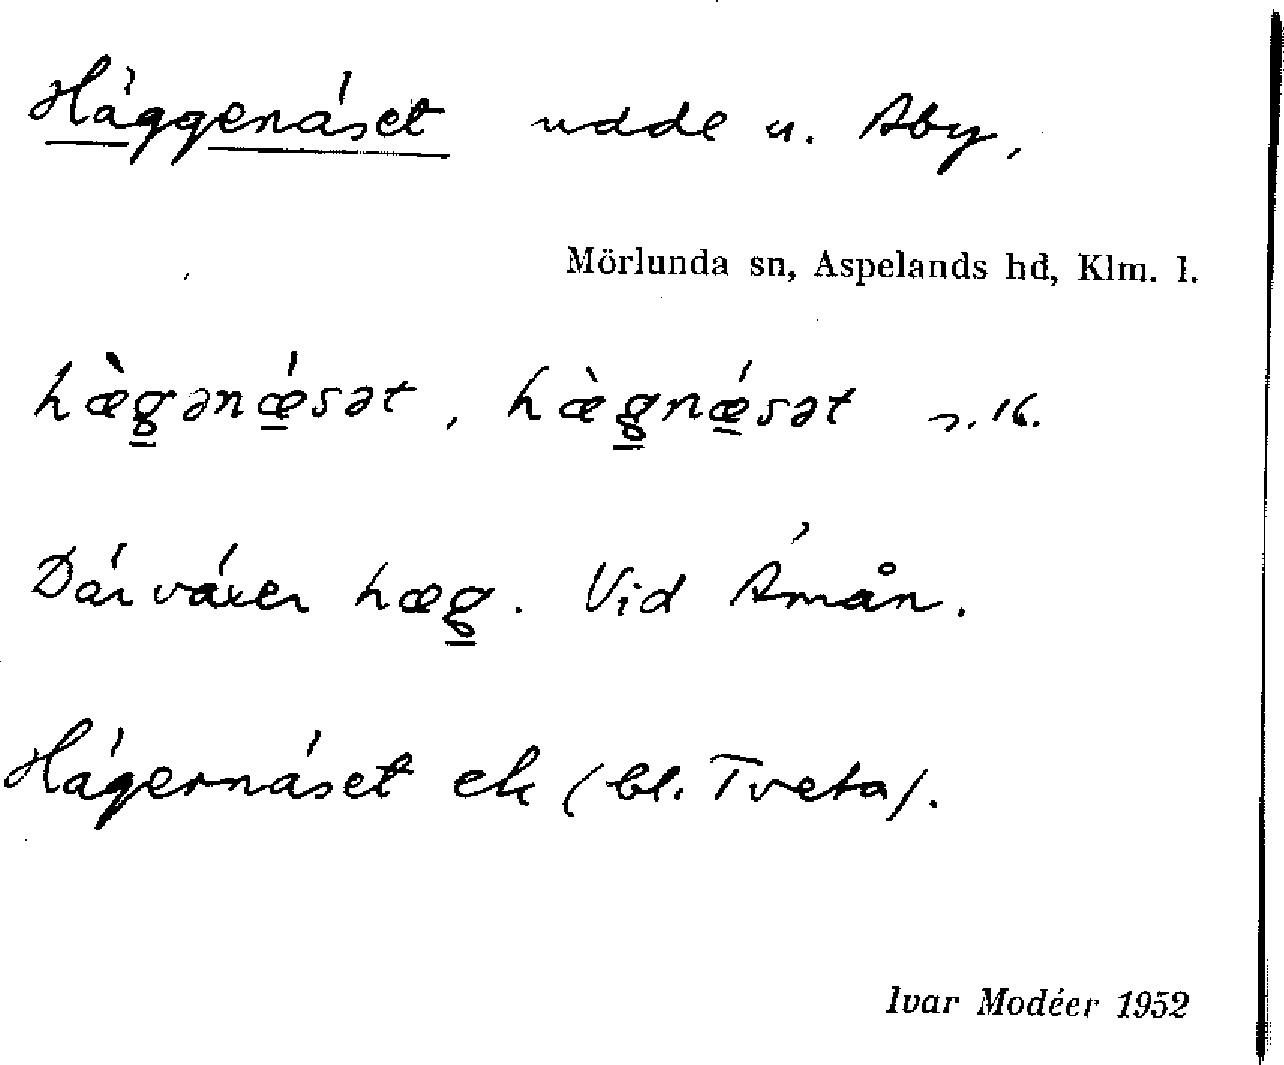 Häggenäset udde u. Åby,
Mörlunda sn, Aspelands hd, Klm. l.
hæ̀g̲ənǽ̲sət, hæ̀g̲nǽ̲sət n. 16.
Där växer hæg̲. Vid Åmån.
Hägernäset ek (bl. Tveta).
Ivar Modéer 1952